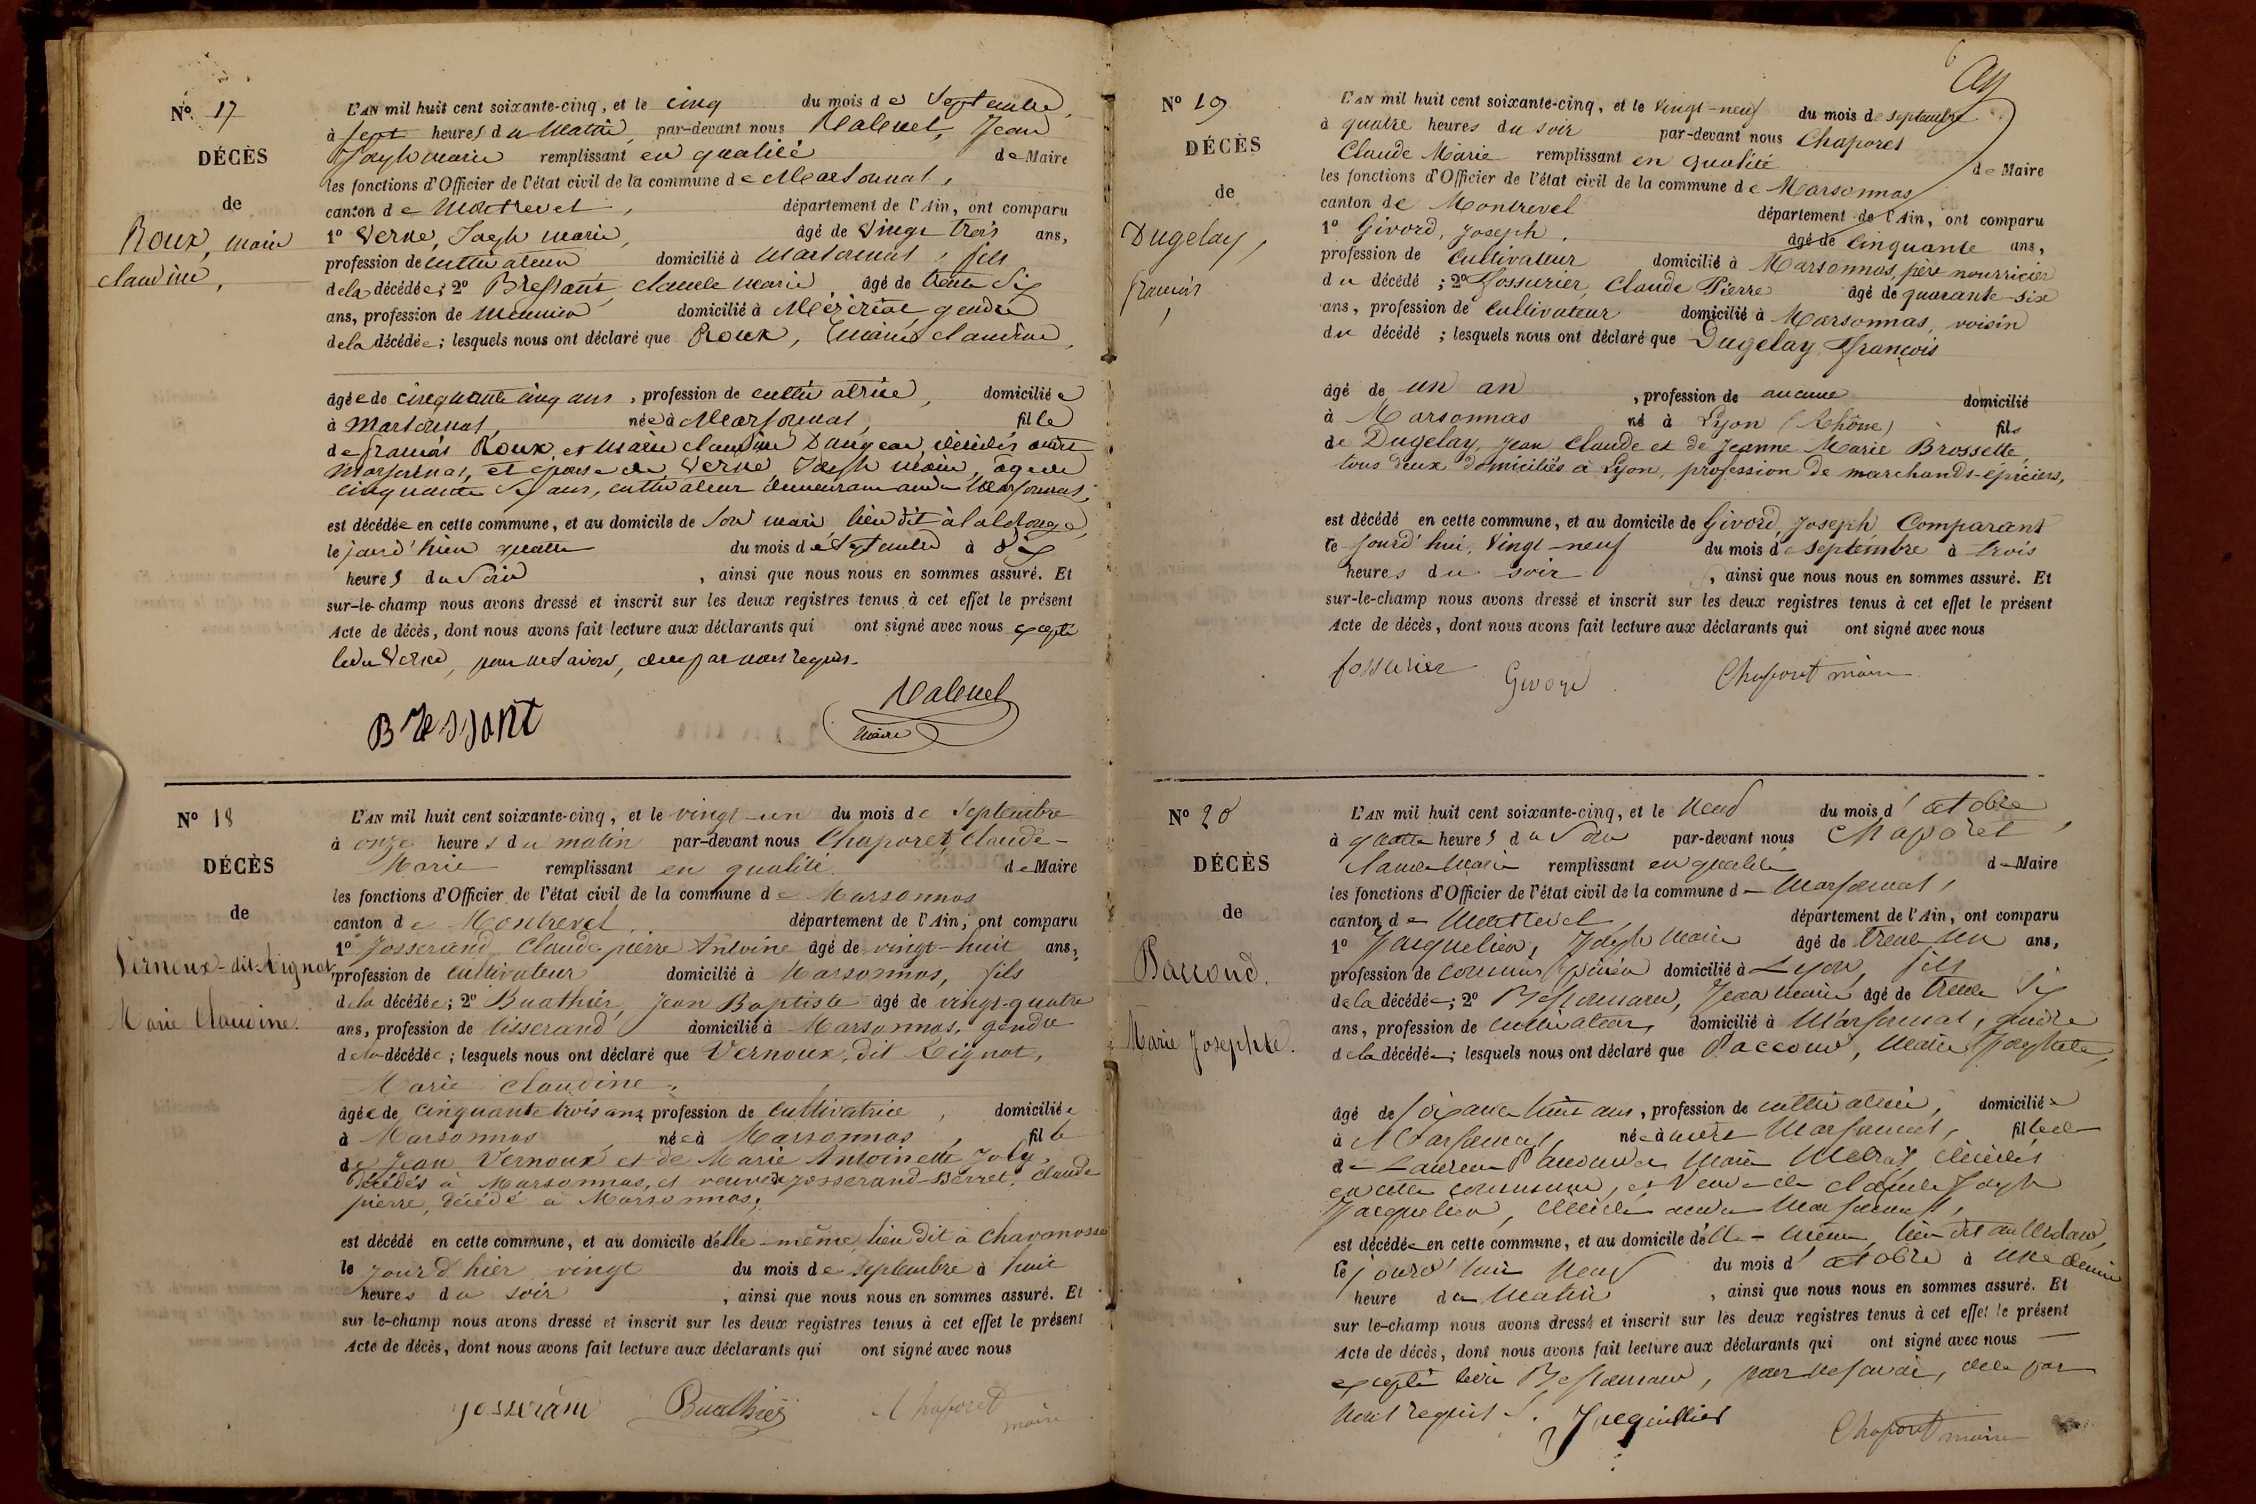 N° 17
DÉCÈS
de
Roux, marie
claudine,
L'AN mil huit cent soixante-cinq, et le cinq du mois de Septembre,
à sept heures du Matin, par-devant nous Jean
Joseph marie remplissant en qualité de Maire
les fonctions d'Officier de l'état civil de la commune de Marsonnas,
canton de Montrevel, département de l'Ain, ont comparu
1° Verne, Joseph marie, âgé de Vingt trois ans,
profession de cultivateur domicilié à Marsonnas, fils
de la décédée; 2° Bressant, claude marie, âgé de trente Six
ans, profession de Meunier domicilié à Mézériat gendre
de la décédée; lesquels nous ont déclaré que Roux, Marie claudine,
âgée de cinquante cinq ans, profession de cultivatrice, domiciliée
à Marsonnas, née à Marsonnas, fille
de françois Roux, et Marie claudine Dangean, décédés audit
Marsonnas, et épouse de Verne Joseph marie, âgé de
cinquante Six ans, cultivateur demeurant audit Marsonnas,
est décédée en cette commune, et au domicile de son mari lieu dit à
le jourd'hier quatre du mois de Septembre à dix
heures du Soir, ainsi que nous nous en sommes assuré. Et
sur-le-champ nous avons dressé et inscrit sur les deux registres tenus à cet effet le présent
Acte de décès, dont nous avons fait lecture aux déclarants qui ont signé avec nous excepté
ledit Verne, pour ne savoir, de ce par nous requis.
Bressant
maire
N° 18
DÉCÈS
de
Vernoux-dit-Rignot,
Marie Claudine.
L'AN mil huit cent soixante-cinq, et le vingt-un du mois de Septembre
à onze heures du matin par-devant nous Chaporet, Claude-
Marie remplissant en qualité de Maire
les fonctions d'Officier de l'état civil de la commune de Marsonnas
canton de Montrevel département de l'Ain, ont comparu
1° Josserand, Claude pierre Antoine âgé de vingt-huit ans,
profession de Cultivateur domicilié à Marsonnas, fils
de la décédée; 2° Buathier, Jean Baptiste âgé de vingt-quatre
ans, profession de tisserand domicilié à Marsonnas, gendre
de la décédée; lesquels nous ont déclaré que Vernoux, dit Rignot,
Marie Claudine,
âgée de Cinquante trois ans, profession de Cultivatrice, domiciliée
à Marsonnas, née à Marsonnas, fille
de Jean Vernoux et de Marie Antoinette Joly,
décédés à Marsonnas, et veuve de Josserand-Berret, Claude
pierre, décédé à Marsonnas,
est décédé en cette commune, et au domicile d'elle-même, lieu dit à Chavanosse
le jourd'hier vingt du mois de septembre à huit
heures du soir, ainsi que nous nous en sommes assuré. Et
sur le-champ nous avons dressé et inscrit sur les deux registres tenus à cet effet le présent
Acte de décès, dont nous avons fait lecture aux déclarants qui ont signé avec nous
Josserand Buathier Chaporet
maire
N° 19
DÉCÈS
de
Dugelay,
françois
L'AN mil huit cent soixante-cinq, et le Vingt-neuf du mois de septembre
à quatre heures du soir par-devant nous Chaporet
Claude Marie remplissant en qualité de Maire
les fonctions d'Officier de l'état civil de la commune de Marsonnas
canton de Montrevel département de l'Ain, ont comparu
1° Givord, Joseph, âgé de Cinquante ans,
profession de Cultivateur domicilié à Marsonnas, père nourricier
du décédé; 2° Fossurier, Claude Pierre âgé de quarante-six
ans, profession de Cultivateur domicilié à Marsonnas, voisin
du décédé; lesquels nous ont déclaré que Dugelay, François
âgé de un an, profession de aucune domicilié
à Marsonnas né à Lyon (Rhône) fils
de Dugelay, Jean Claude et de Jeanne Marie Brossette,
tous deux domiciliés à Lyon, profession de marchands-épiciers,
est décédé en cette commune, et au domicile de Givord, Joseph Comparant
le Jourd'hui, Vingt-neuf du mois de septembre à trois
heures du soir, ainsi que nous nous en sommes assuré. Et
sur-le-champ nous avons dressé et inscrit sur les deux registres tenus à cet effet le présent
Acte de décès, dont nous avons fait lecture aux déclarants qui ont signé avec nous
fossurier Givord Chaporet maire
N° 20
DÉCÈS
de
Paccoud.
Marie Josephte.
L'AN mil huit cent soixante-cinq, et le Neuf du mois d'octobre,
à quatre heures du Soir par-devant nous Chaporet
Claude Marie remplissant en qualité de Maire
les fonctions d'Officier de l'état civil de la commune de Marsonnas,
canton de Montrevel, département de l'Ain, ont comparu
1° Jacquelier, Joseph Marie âgé de trente un ans,
profession de commis épicier domicilié à Lyon, fils
de la décédée; 2° Jean Marie âgé de trente Six
ans, profession de cultivateur, domicilié à Marsonnas, gendre
de la décédée; lesquels nous ont déclaré que Paccoud, Marie Josephte,
âgé de soixante huit ans, profession de cultivatrice, domiciliée
à Marsonnas, née à Marsonnas, fille
de Laurent Paccoud et Marie décédés
en cette commune, et Veuve de claude Joseph
Jacquelier, décédé audit Marsonnas,
est décédée en cette commune, et au domicile d'elle-même, lieu dit
le jourd'hui Neuf du mois d'octobre à une demie
heure du Matin, ainsi que nous nous en sommes assuré. Et
sur le-champ nous avons dressé et inscrit sur les deux registres tenus à cet effet le présent
Acte de décès, dont nous avons fait lecture aux déclarants qui ont signé avec nous
excepté ledit pour ne savoir, de ce par
nous requis.
Chaporet maire